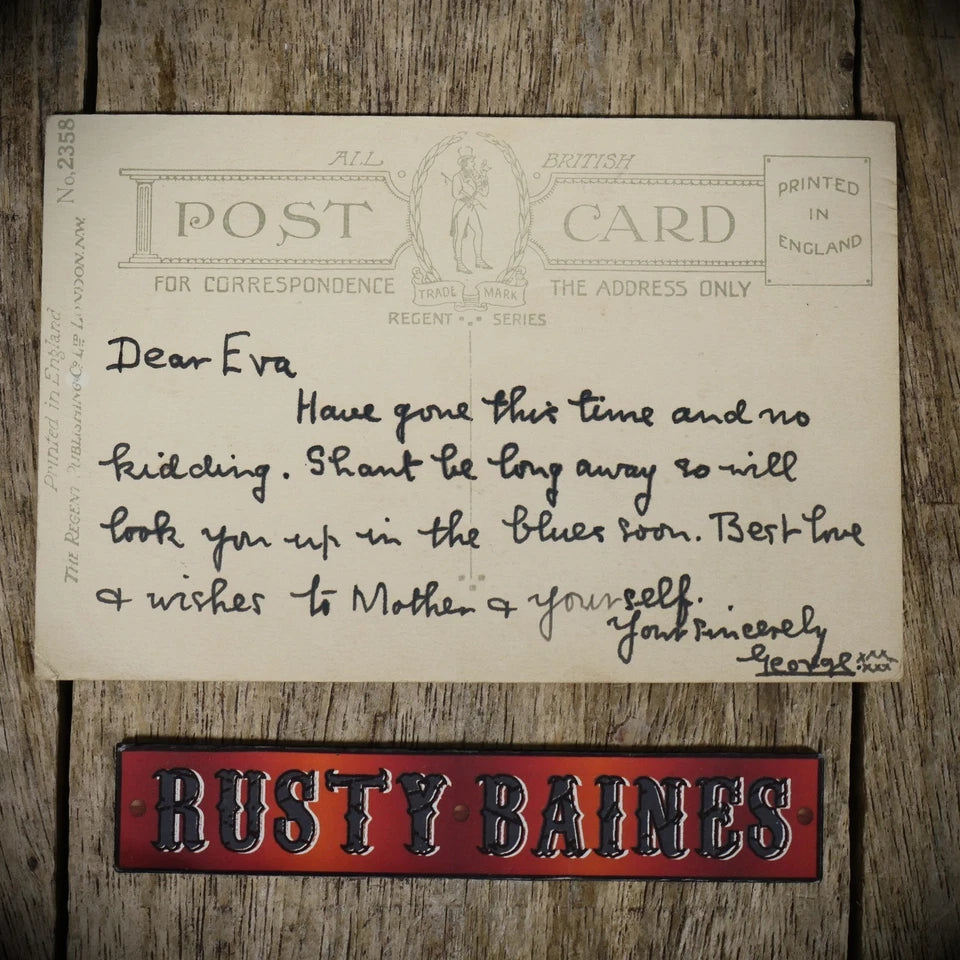 ALL BRITISH
POST CARD
PRINTED
IN
ENGLAND
FOR CORRESPONDENCE THE ADDRESS ONLY
TRADE MARK
REGENT SERIES
No. 2358
Printed in England
THE REGENT PUBLISHING Co Ltd LONDON. N.W.
Dear Eva
Have gone this time and no
kidding. Shant be long away so will
look you up in the blues soon. Best love
& wishes to Mother & yourself.
Yours sincerely
George xxx
xxxx
RUSTY BAINES